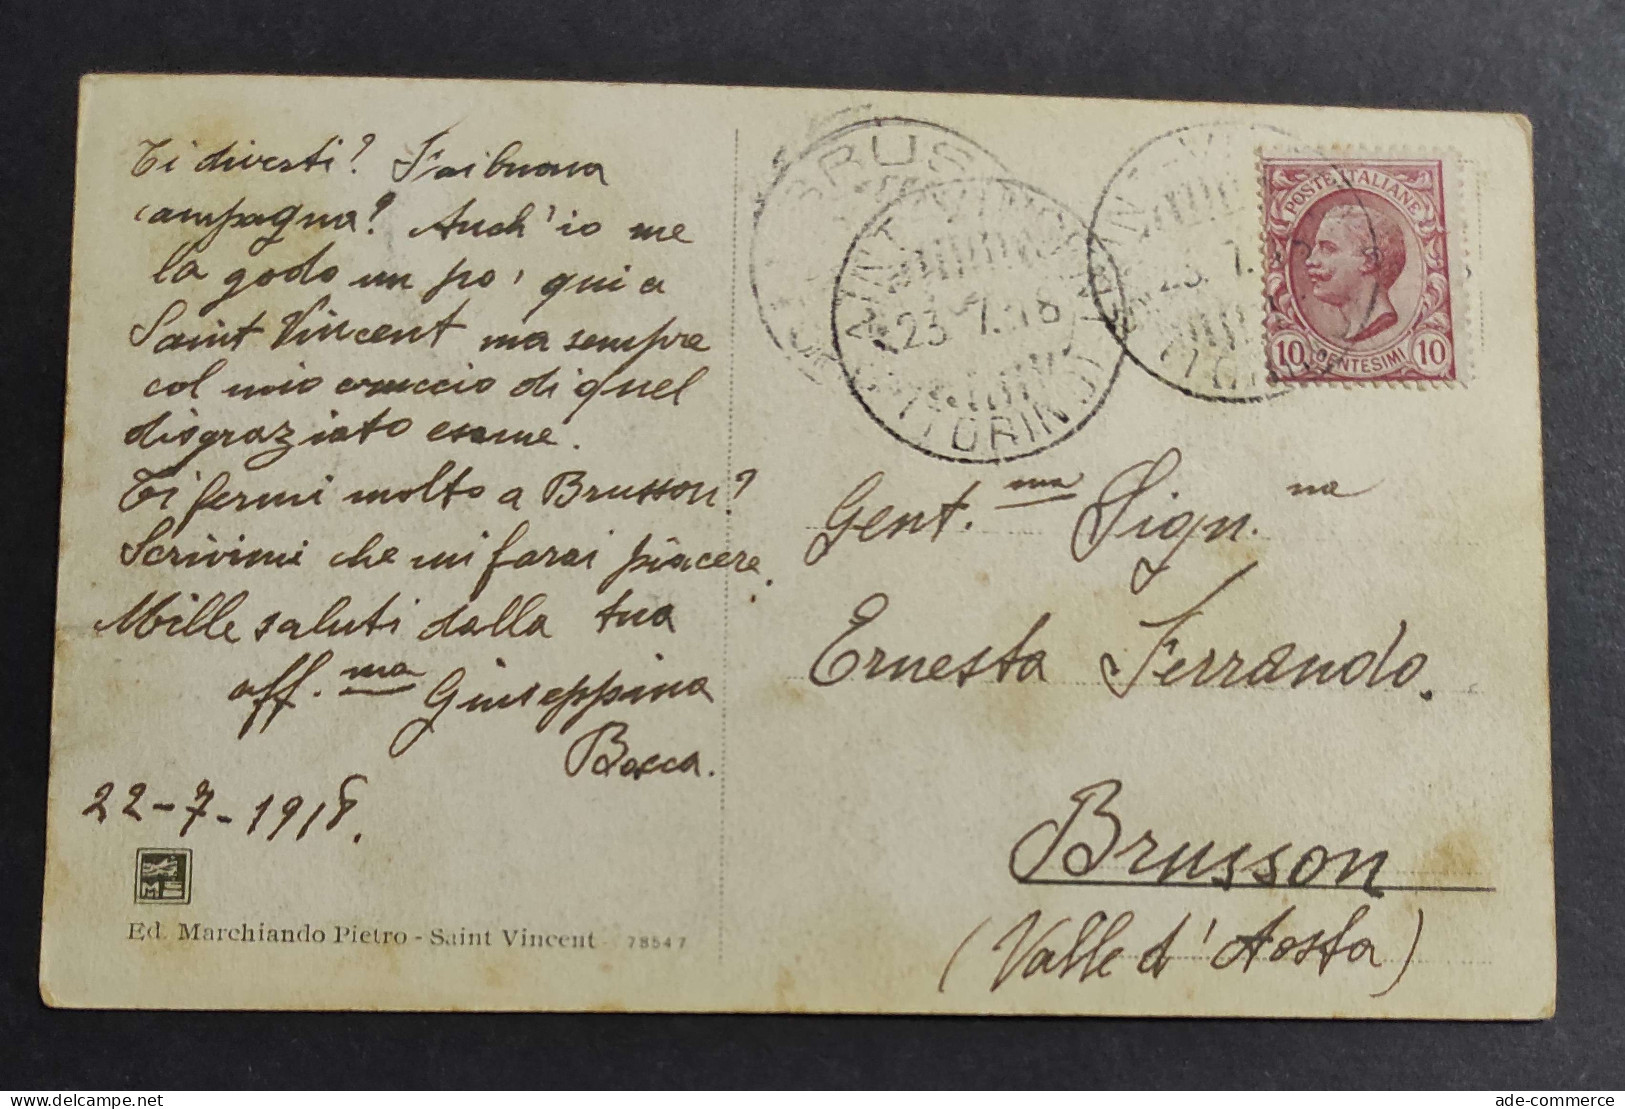 Ti diverti? Fai buona
campagna? Anch'io me
la godo un po' qui a
Saint Vincent ma sempre
col mio cruccio di quel
disgraziato esame.
Ti fermi molto a Brusson?
Scrivimi che mi farai piacere.
Mille saluti dalla tua
aff.ma Giuseppina
Bocca.
22-7-1918.
Ed. Marchiando Pietro - Saint Vincent 78547
BRUS
SAINT VINCENT
23.7.18
(TORINO)
SAINT-VI
23.7.
POSTE ITALIANE
10 CENTESIMI 10
Gent.ma Sign.na
Ernesta Ferrando.
Brusson
(Valle d'Aosta)
delcampe.net
ade-commerce